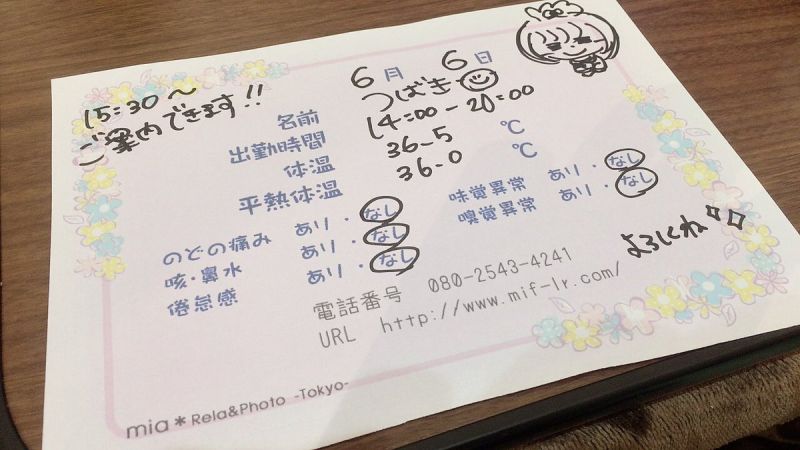 15:30〜
ご案内できます!!
6月 6日
名前 つばき
出勤時間 14:00-20:00
体温 36.5 ℃
平熱体温 36.0 ℃
のどの痛み あり・なし
咳・鼻水 あり・なし
倦怠感 あり・なし
味覚異常 あり・なし
嗅覚異常 あり・なし
よろしくね
電話番号 080-2543-4241
URL http://www.mif-lr.com/
mia*Rela&Photo -Tokyo-